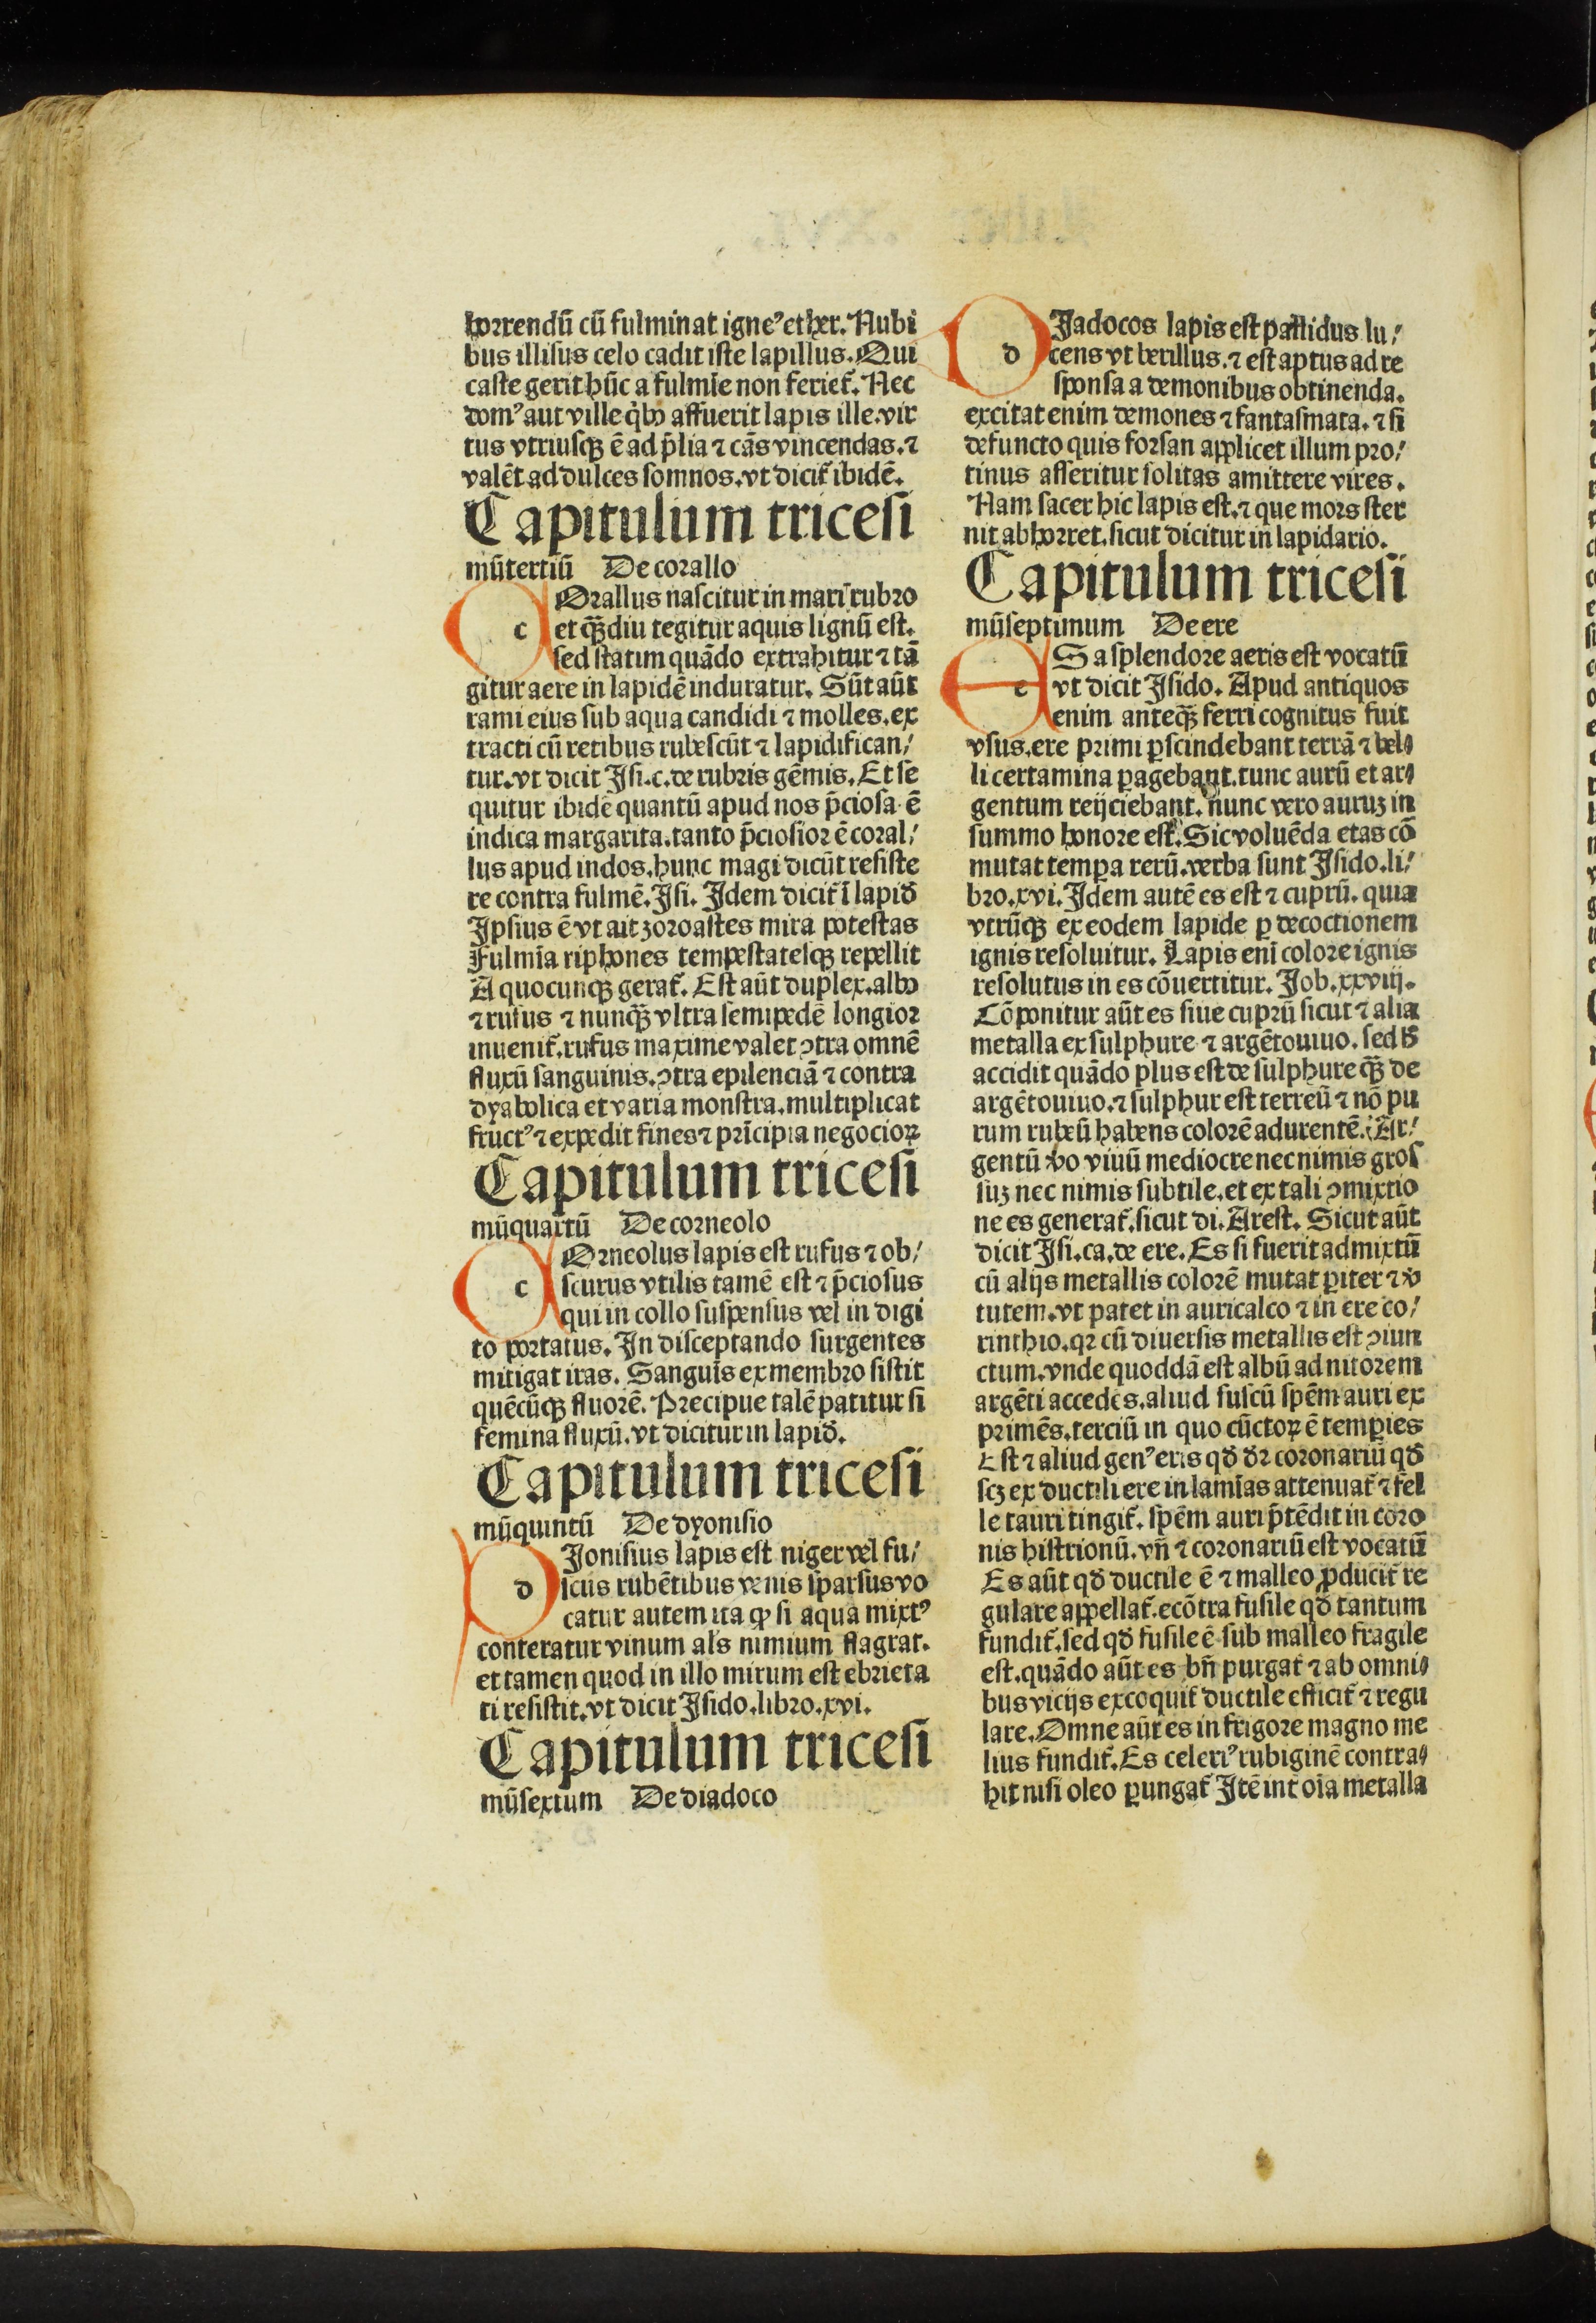 horrendū cū fulminat igneꝰ ether. Nubi
bus illisus celo cadit iste lapillus. Qui
caste gerit hūc a fulmīe non feriet᷑. Nec
domꝰ aut ville qͥbꝰ affuerit lapis ille. vir
tus vtriusqꝫ ē ad p̄lia ⁊ cās vincendas. ⁊
valēt ad dulces somnos. vt dicit᷑ ibidē.
Capitulum tricesi
mūtertiū De corallo
COrallus nascitur in mari rubro
et qꝫ̄diu tegitur aquis lignū est.
sed statim quādo extrahitur ⁊ tā
gitur aere in lapidē induratur. Sūt aūt
rami eius sub aqua candidi ⁊ molles. ex
tracti cū retibus rubescūt ⁊ lapidifican/
tur. vt dicit Isi. c. de rubris gēmis. Et se
quitur ibidē quantū apud nos p̄ciosa ē
indica margarita. tanto p̄ciosior ē coral/
lus apud indos. hunc magi dicūt resiste
re contra fulmē. Isi. Idem dicit᷑ ī lapid̄
Ipsius ē vt ait zoroastes mira potestas
Fulmīa riphones tempestatesqꝫ repellit
A quocunqꝫ gerat᷑. Est aūt duplex. albꝰ
⁊ rufus ⁊ nunqꝫ̄ vltra semipedē longior
inuenit᷑. rufus maxime valet ↄtra omnē
fluxū sanguinis. ↄtra epilenciā ⁊ contra
dyabolica et varia monstra. multiplicat
fructꝰ ⁊ expedit fines ⁊ prīcipia negocioꝝ
Capitulum tricesi
mūquartū De corneolo
COrneolus lapis est rufus ⁊ ob/
scurus vtilis tamē est ⁊ p̄ciosus
qui in collo suspensus vel in digi
to portatus. In disceptando surgentes
mitigat iras. Sanguīs ex membro sistit
quēcūqꝫ fluorē. Precipue talē patitur si
femina fluxū. vt dicitur in lapid̄.
Capitulum tricesi
mūquintū De dyonisio
DIonisius lapis est niger vel fu/
scus rubētibus venis sparsus vo
catur autem ita ꝙ si aqua mixtꝰ
conteratur vinum als nimium flagrat.
et tamen quod in illo mirum est ebrieta
ti resistit. vt dicit Isido. libro. xvi.
Capitulum tricesi
mūsextum De diadoco
DIadocos lapis est pallidus lu/
cens vt berillus. ⁊ est aptus ad re
sponsa a demonibus obtinenda.
excitat enim demones ⁊ fantasmata. ⁊ si
defuncto quis forsan applicet illum pro/
tinus asseritur solitas amittere vires.
Nam sacer hic lapis est. ⁊ que mors ster
nit abhorret. sicut dicitur in lapidario.
Capitulum tricesi
mūseptimum De ere
ES a splendore aeris est vocatū
vt dicit Isido. Apud antiquos
enim anteqꝫ̄ ferri cognitus fuit
vsus. ere primi ꝑscindebant terrā ⁊ bel/
li certamina ꝑagebant. tunc aurū et ar/
gentum reijciebant. nunc vero auruꝫ in
summo honore est. Sic voluēda etas cō
mutat tempꝑa rerū. verba sunt Isido. li/
bro. xvi. Idem autē es est ⁊ cuprū. quia
vtrūqꝫ ex eodem lapide ꝑ decoctionem
ignis resoluitur. Lapis enī colore ignis
resolutus in es cōuertitur. Job. xxviij.
Cōponitur aūt es siue cuprū sicut ⁊ alia
metalla ex sulphure ⁊ argētouiuo. sed h̄
accidit quādo plus est de sulphure qꝫ̄ de
argētouiuo. ⁊ sulphur est terreū ⁊ nō pu
rum rubeū habens colorē adurentē. Ar/
gentū v̄o viuū mediocre nec nimis gros
suꝫ nec nimis subtile. et ex tali ↄmixtio
ne es generat᷑. sicut di. Arest. Sicut aūt
dicit Isi. ca. de ere. Es si fuerit admixtū
cū alijs metallis colorē mutat ꝑiter ⁊ v̄
tutem. vt patet in auricalco ⁊ in ere co/
rinthio. qꝛ cū diuersis metallis est ↄiun
ctum. vnde quoddā est albū ad nitorem
argēti accedēs. aliud fuscū spēm auri ex
primēs. terciū in quo cūctoꝝ ē temꝑies
Est ⁊ aliud genꝰ eris qd̄ dr̄ coronariū qd̄
scꝫ ex ductili ere in lamīas attenuat᷑ ⁊ fel
le tauri tingit᷑. spēm auri p̄tēdit in coro
nis histrionū. vn̄ ⁊ coronariū est vocatū
Es aūt qd̄ ductile ē ⁊ malleo ꝓducit᷑ re
gulare appellat᷑. ecōtra fusile qd̄ tantum
fundit᷑. sed qd̄ fusile ē sub malleo fragile
est. quādo aūt es bn̄ purgat᷑ ⁊ ab omni/
bus vicijs excoquit᷑ ductile efficit᷑ ⁊ regu
lare. Omne aūt es in frigore magno me
lius fundit᷑. Es celeriꝰ rubiginē contra/
hit nisi oleo ꝑungat᷑ Itē int᷑ oīa metalla